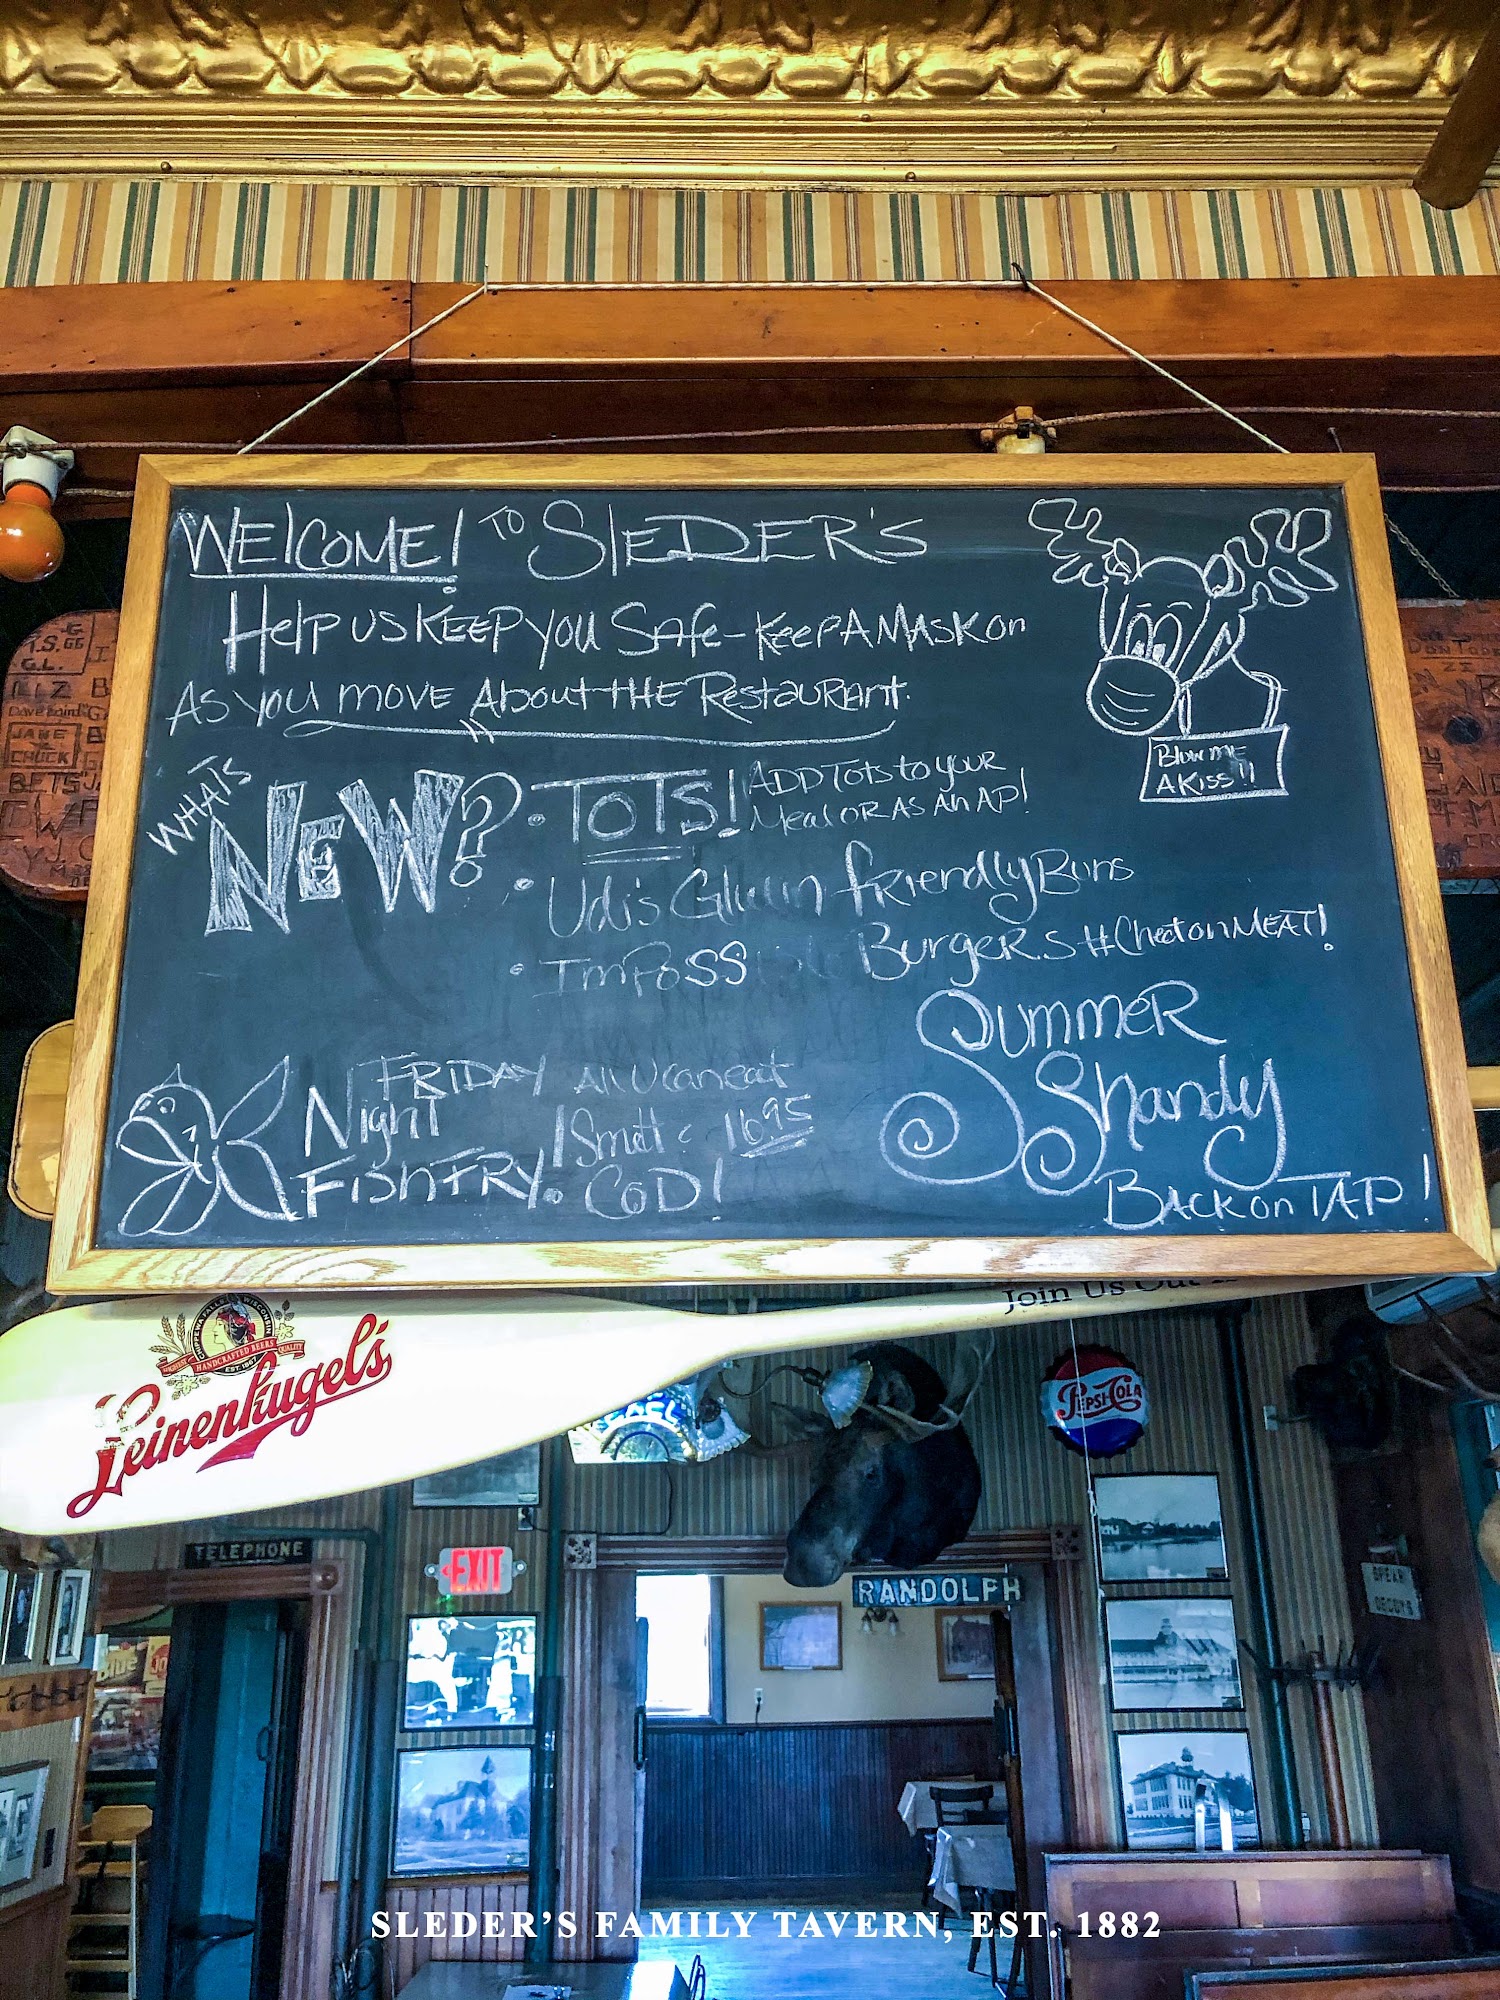 WELCOME! TO SLEDER'S
Help us KEEP you Safe - Keep A MASK on
As you move About THE Restaurant.
WHATS
NEW?
• TOTS! ADD Tots to your
Meal OR AS AN AP!
• Udi's Gluten friendly Buns
• Imposs Burgers #CheatonMEAT!
Blow me
A Kiss!!
FRIDAY
Night
FISH FRY.
All U can eat
1695
COD!
Summer
Shandy
BACK on TAP!
Leinenkugel's
CHIPPEWA FALLS WISCONSIN
HANDCRAFTED BEERS
EST. 1867
QUALITY
Join Us Out
PEPSI-COLA
TELEPHONE
EXIT
RANDOLPH
JANE
CHUCK
BETS
SLEDER'S FAMILY TAVERN, EST. 1882